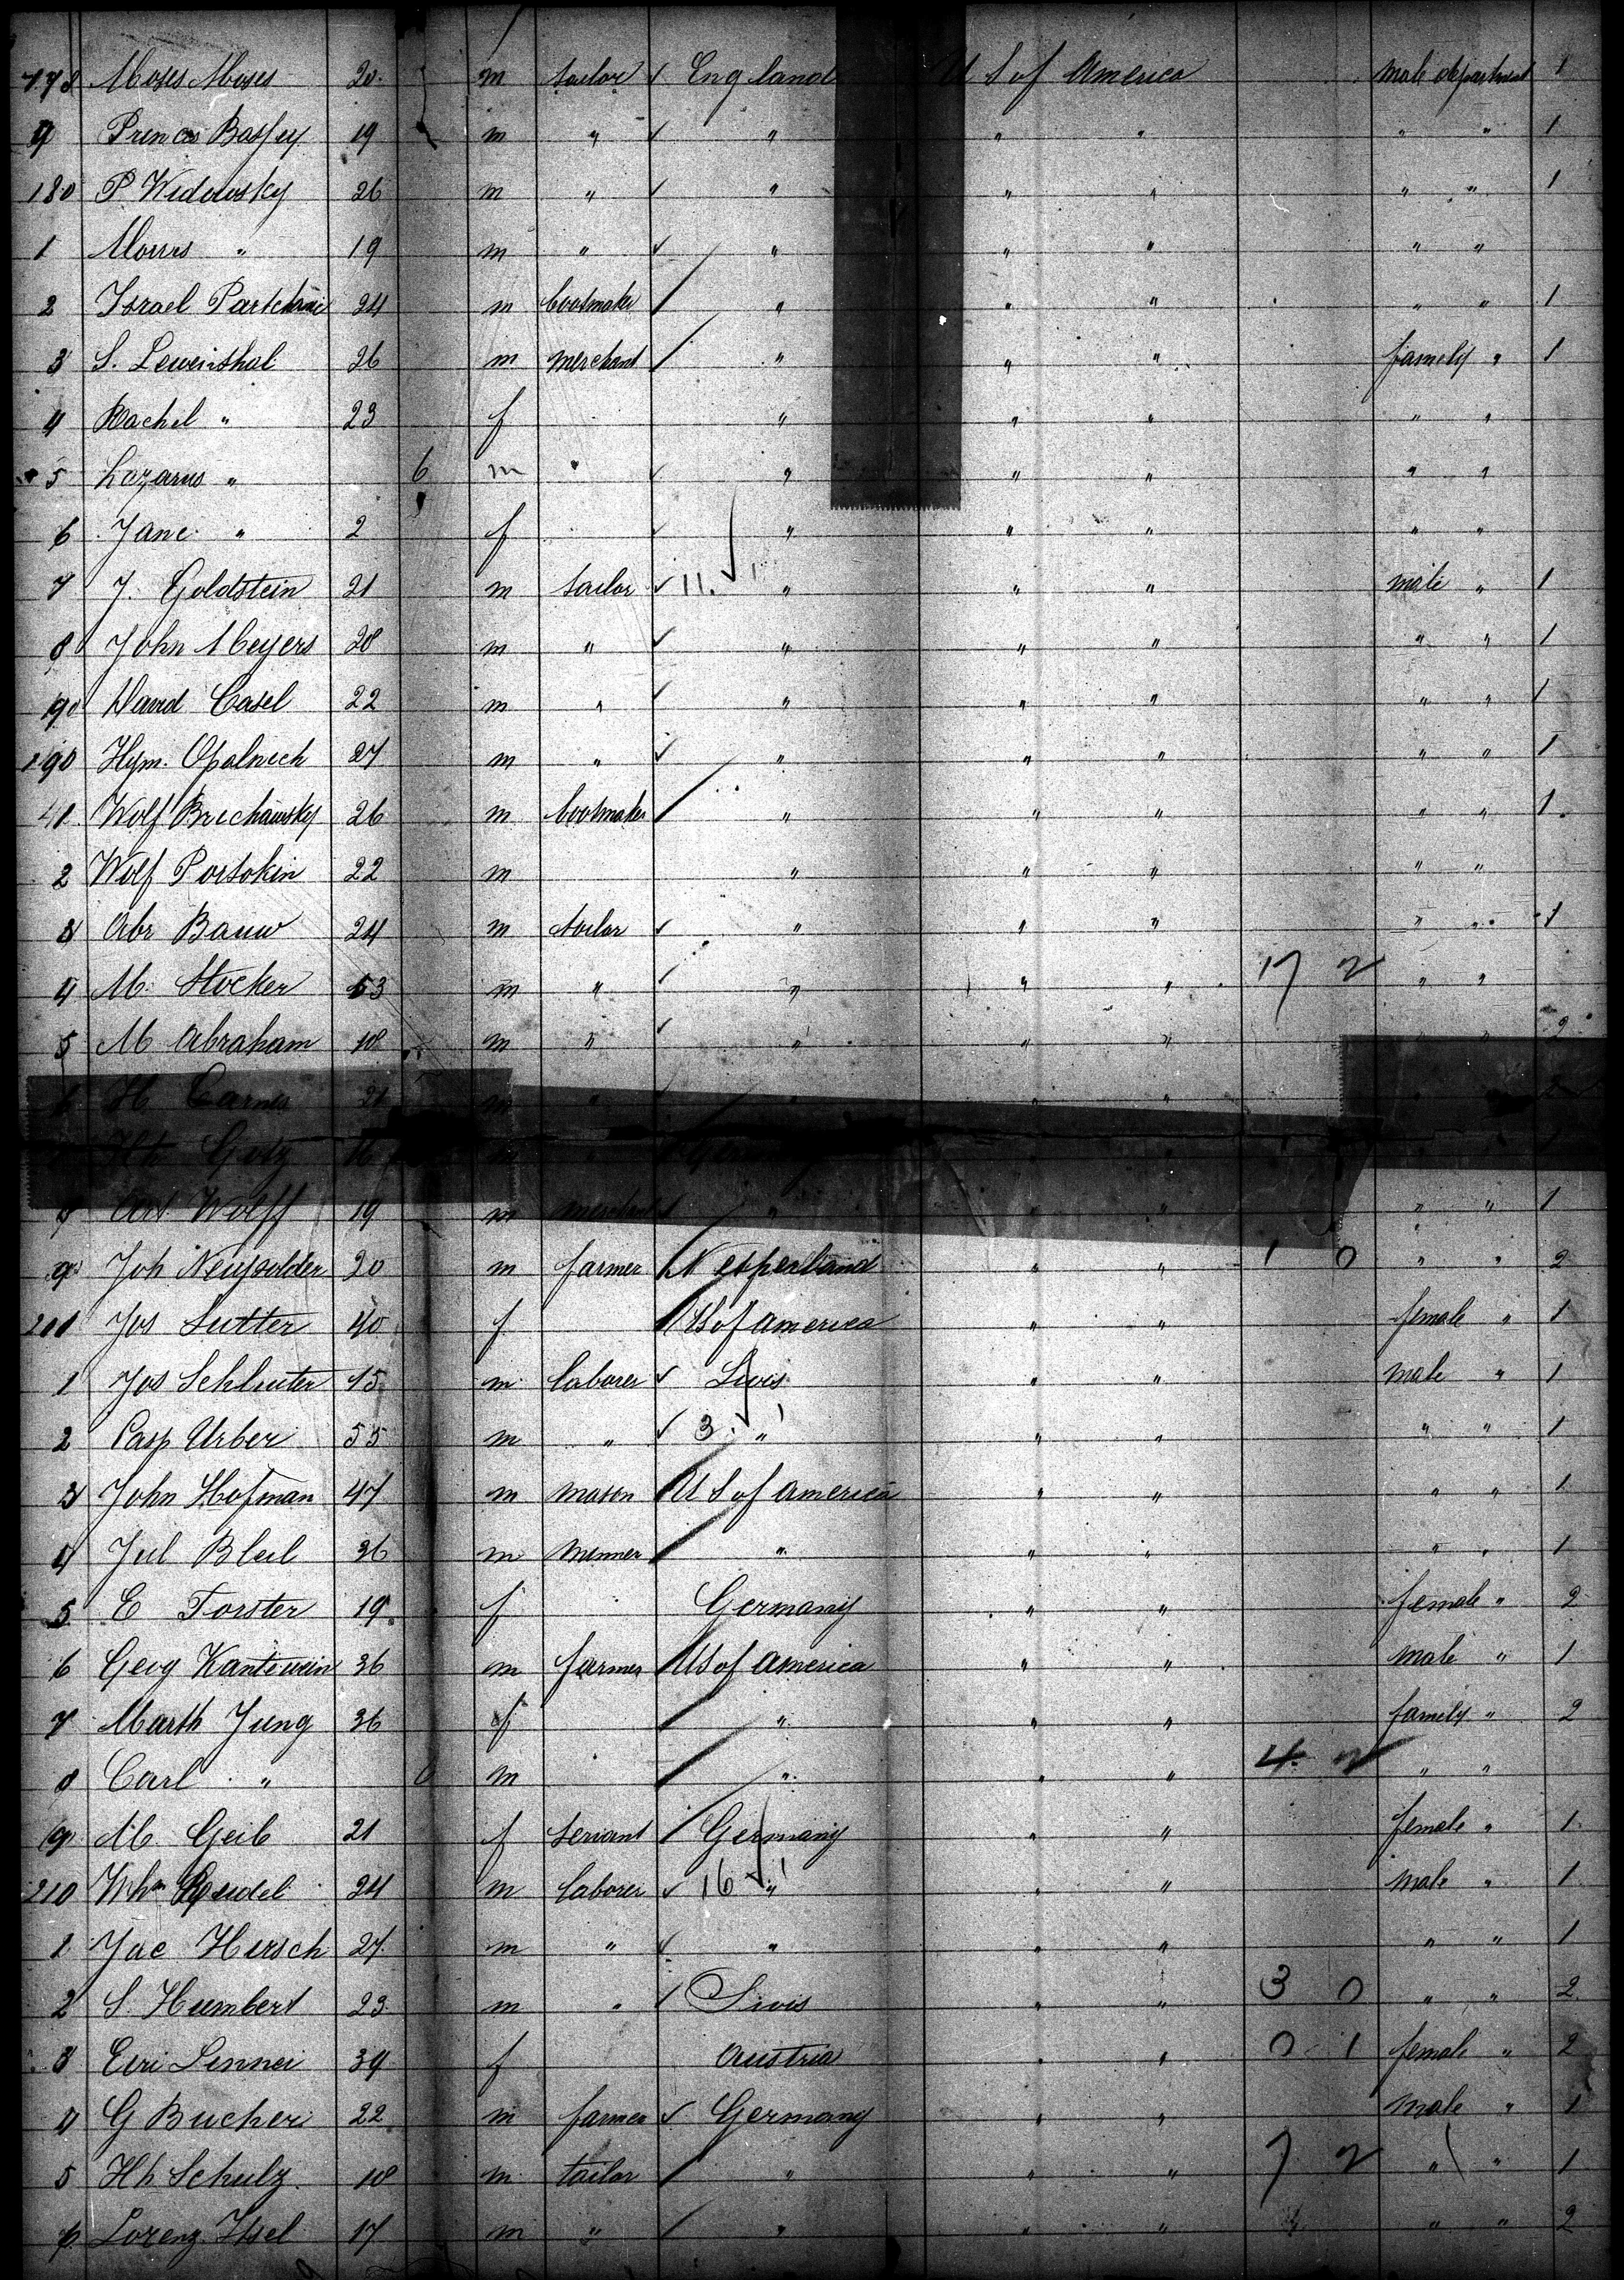 178 Moses Moses 20 m tailor England U S of America male department 1
9 Princos Bassfey 19 m " " " " " " 1
180 P Widowsky 26 m " " " " " " 1
1 Morris " 19 m " " " " " "
2 Israel 24 m bootmaker " " " " " 1
3 S. Lewinsthal 26 m merchant " " " family " 1
4 Rachel " 23 f " " " " "
5 Lazarus " 6 m " " " " "
6 Jane " 2 f " " " " "
7 J. Goldstein 21 m tailor 11. " " " male " 1
8 John Meyers 28 m " " " " " " 1
David Casel 22 m " " " " " " 1
190 Hym. Opalnech 27 m " " " " " " 1
Wolf Brechawsky 26 m bootmaker " " " " " 1
2 Wolf Portokin 22 m " " " " "
3 Abr Bauw 24 m tailor " " " " " 1
4 M. Stocker m " " " " 17 2 " "
5 M Abraham 18 m " " " " " " 2
H Carnes 21 m " " " "
Hh Getz m " Germany " "
Wolff 19 m merchant " " " " " 1
9 Joh 20 m farmer " " 1 0 " " 2
Jos Sutter 40 f U S of America " " female " 1
1 Jos Schluter 45 m laborer Swis " " male " 1
2 Casp Urber 55 m " 3. " " " " " 1
3 John Hofman 47 m mason U S of America " " " " 1
4 Jul Bleil 36 m minner " " " " " 1
5 E Forster 19 f Germany " " female " 2
6 Geog Kantewein 36 m farmer U S of America " " male " 1
7 Marth Jung 36 f " " " family " 2
8 Carl " m " " " 4. 2 " "
9 M. Geib 21 f servant Germany " " female " 1
210 Whm 24 m laborer 16 " " " male " 1
1 Jac Hirsch 27 m " " " " " " 1
2 S. Humbert 23 m " Swis " " 3 0 " " 2
3 Sennei 39 f Austria " " 0 1 female " 2
4 G Bucher 22 m farmer Germany " " male " 1
5 Hh Schulz 18 m tailor " " " 7 2 " " 1
6 Lorenz Itsel 17 m " " " " " " 2